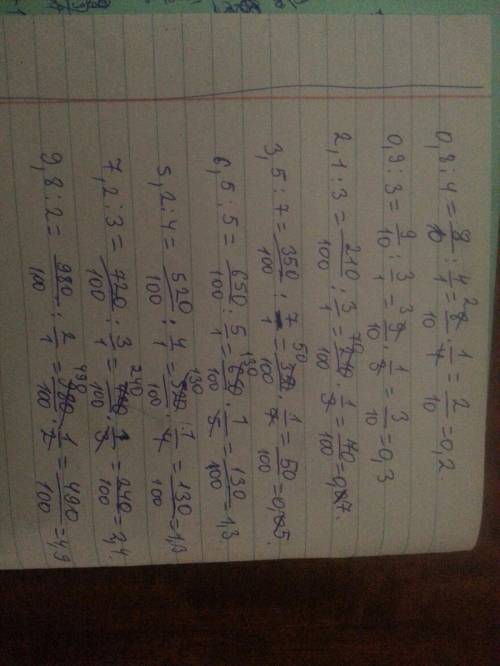 0,8:4=8/10:4/1=8/10·1/4=2/10=0,2
0,9:3=9/10:3/1=9/10·1/3=3/10=0,3
2,1:3=210/100:3/1=210/100·1/3=70/100=0,7.
3,5:7=350/100:7/1=350/100·1/7=50/100=0,5.
6,5:5=650/100:5/1=650/100·1/5=130/100=1,3
5,2:4=520/100:4/1=520/100·1/4=130/100=1,3
7,2:3=720/100:3/1=720/100·1/3=240/100=2,4.
9,8:2=980/100:2/1=980/100·1/2=490/100=4,9